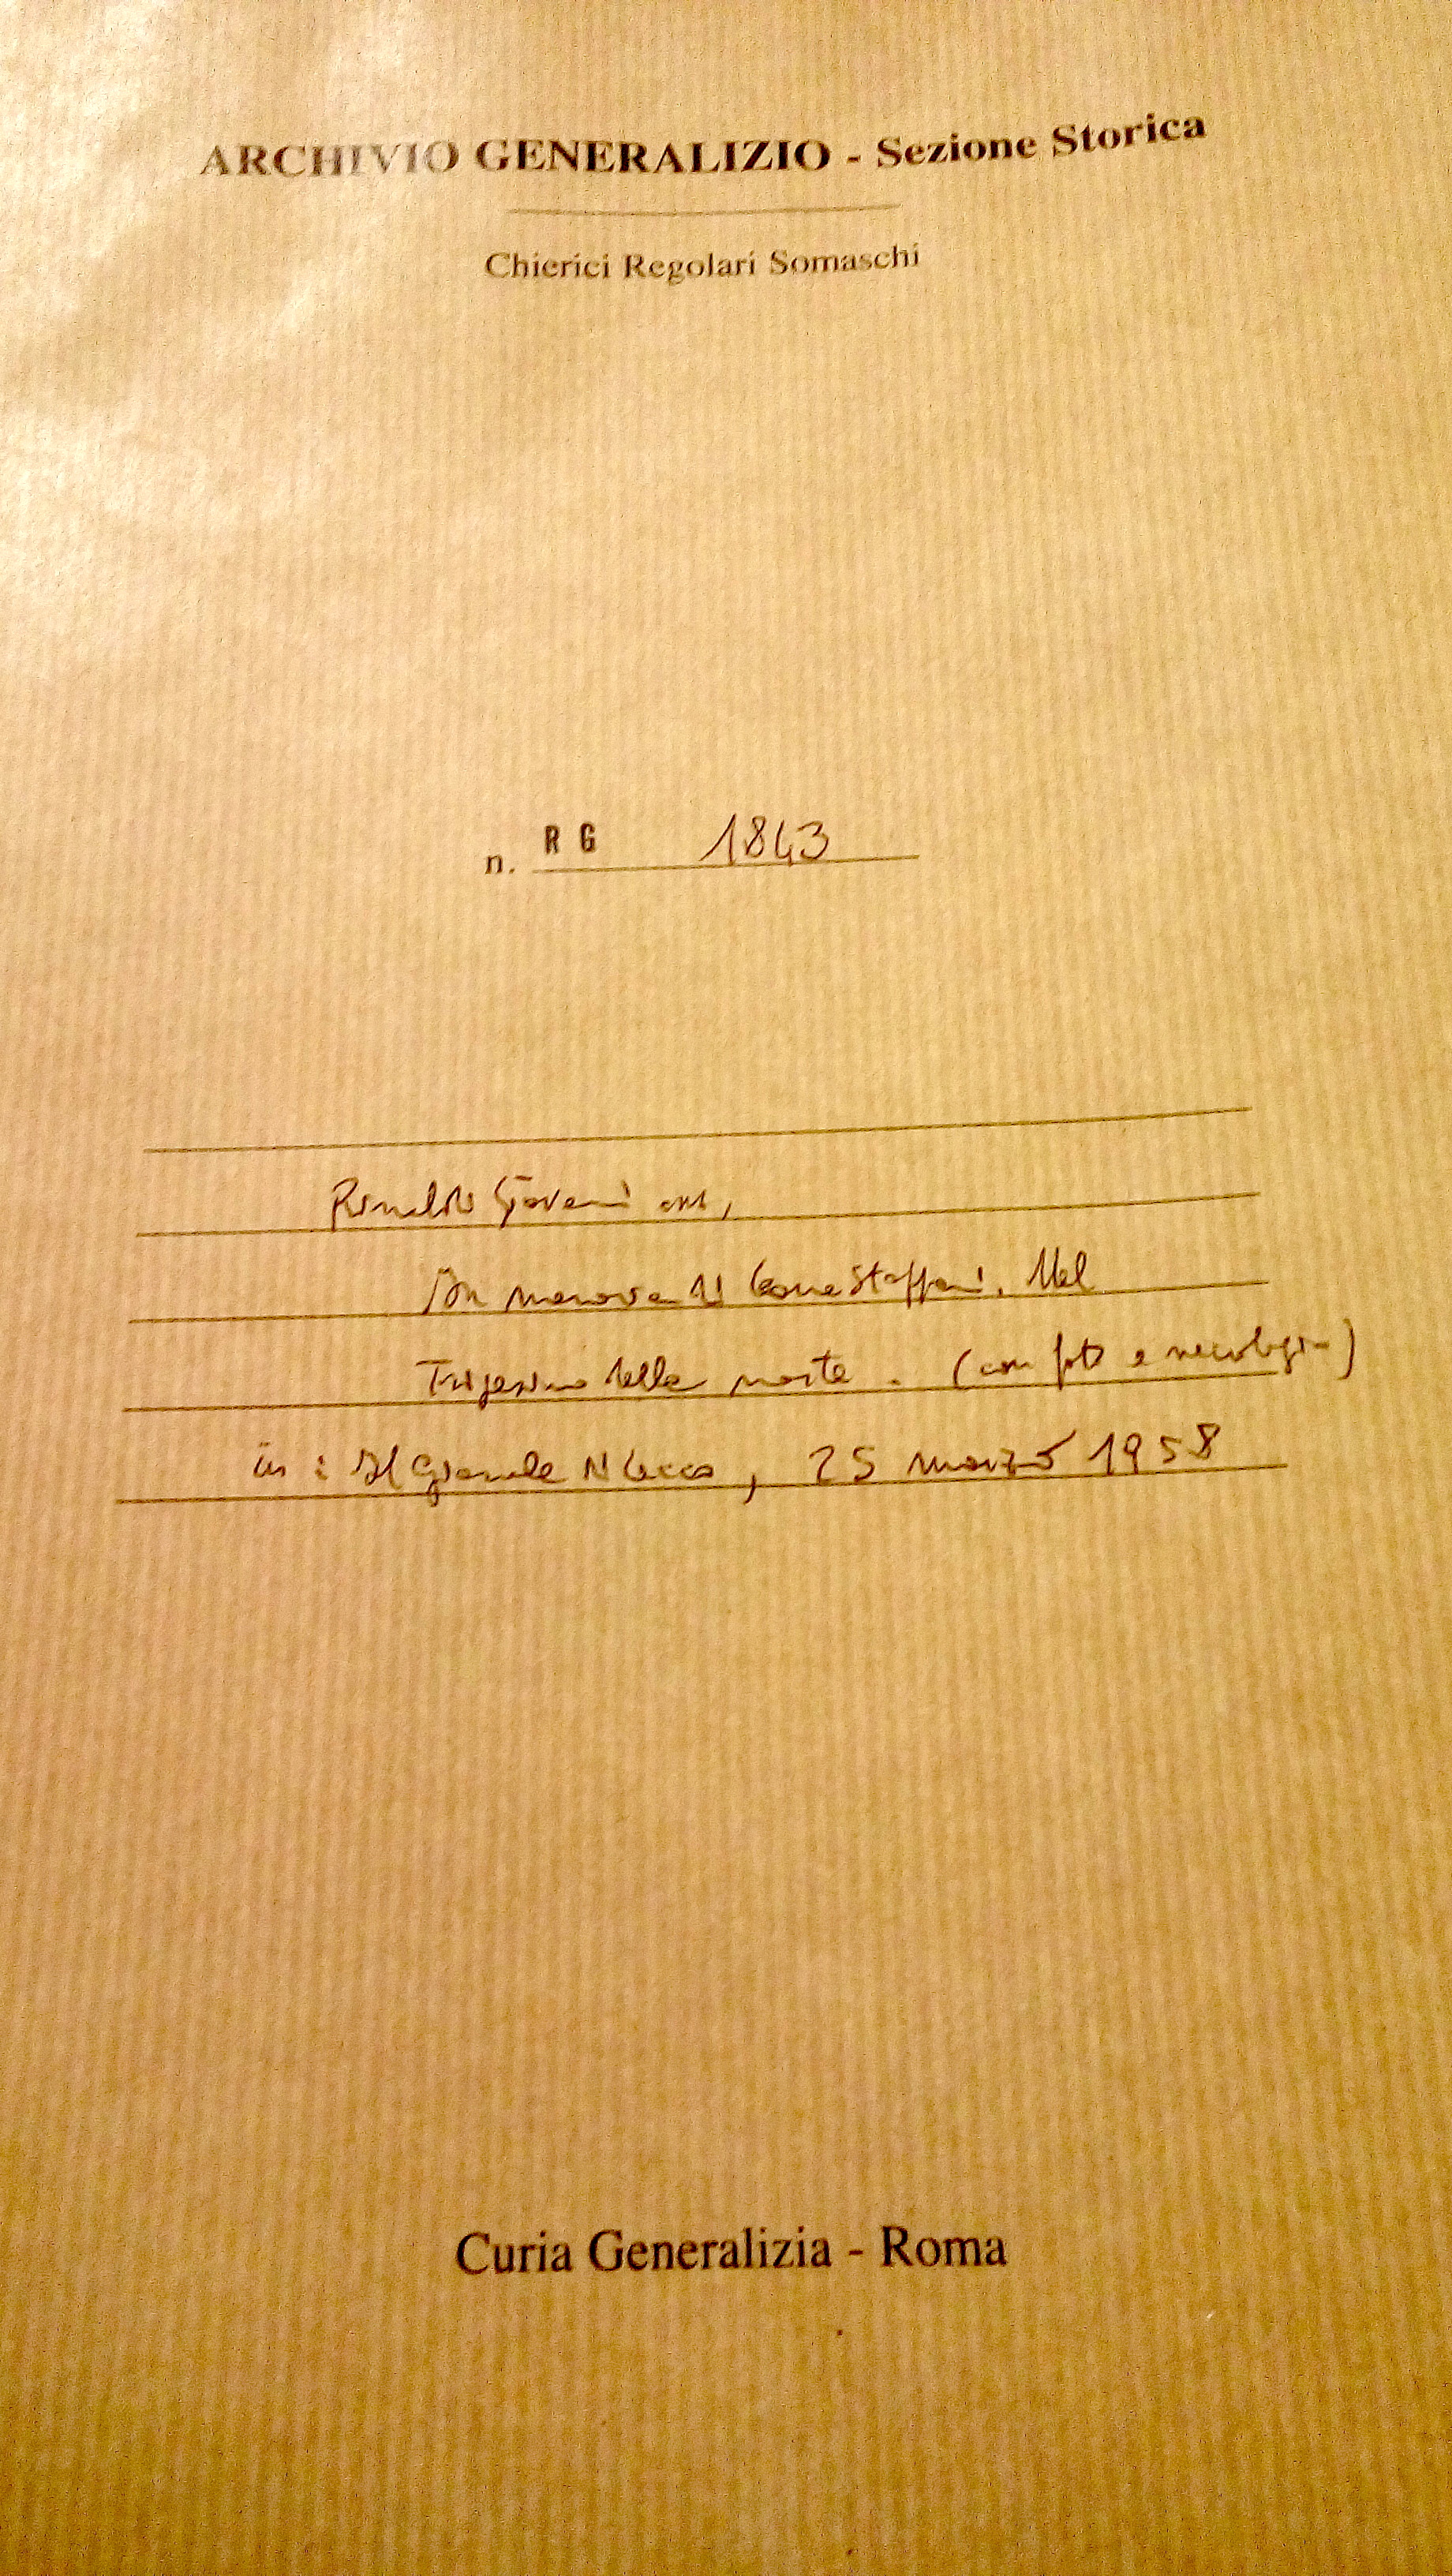 ARCHIVIO GENERALIZIO - Sezione Storica
Chierici Regolari Somaschi
n. R G 1843
Rinaldi Giovanni crs,
In memoria di Leone Staffani. Nel
Trigesimo della morte. (con foto e necrologio)
in: Il Giornale di Lecco, 25 marzo 1958
Curia Generalizia - Roma